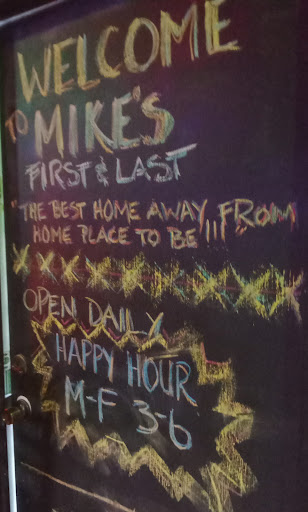 WELCOME
TO MIKE'S
FIRST & LAST
"THE BEST HOME AWAY FROM
HOME PLACE TO BE"!!
XXXXXXXXXXX
OPEN DAILY
HAPPY HOUR
M-F 3-6